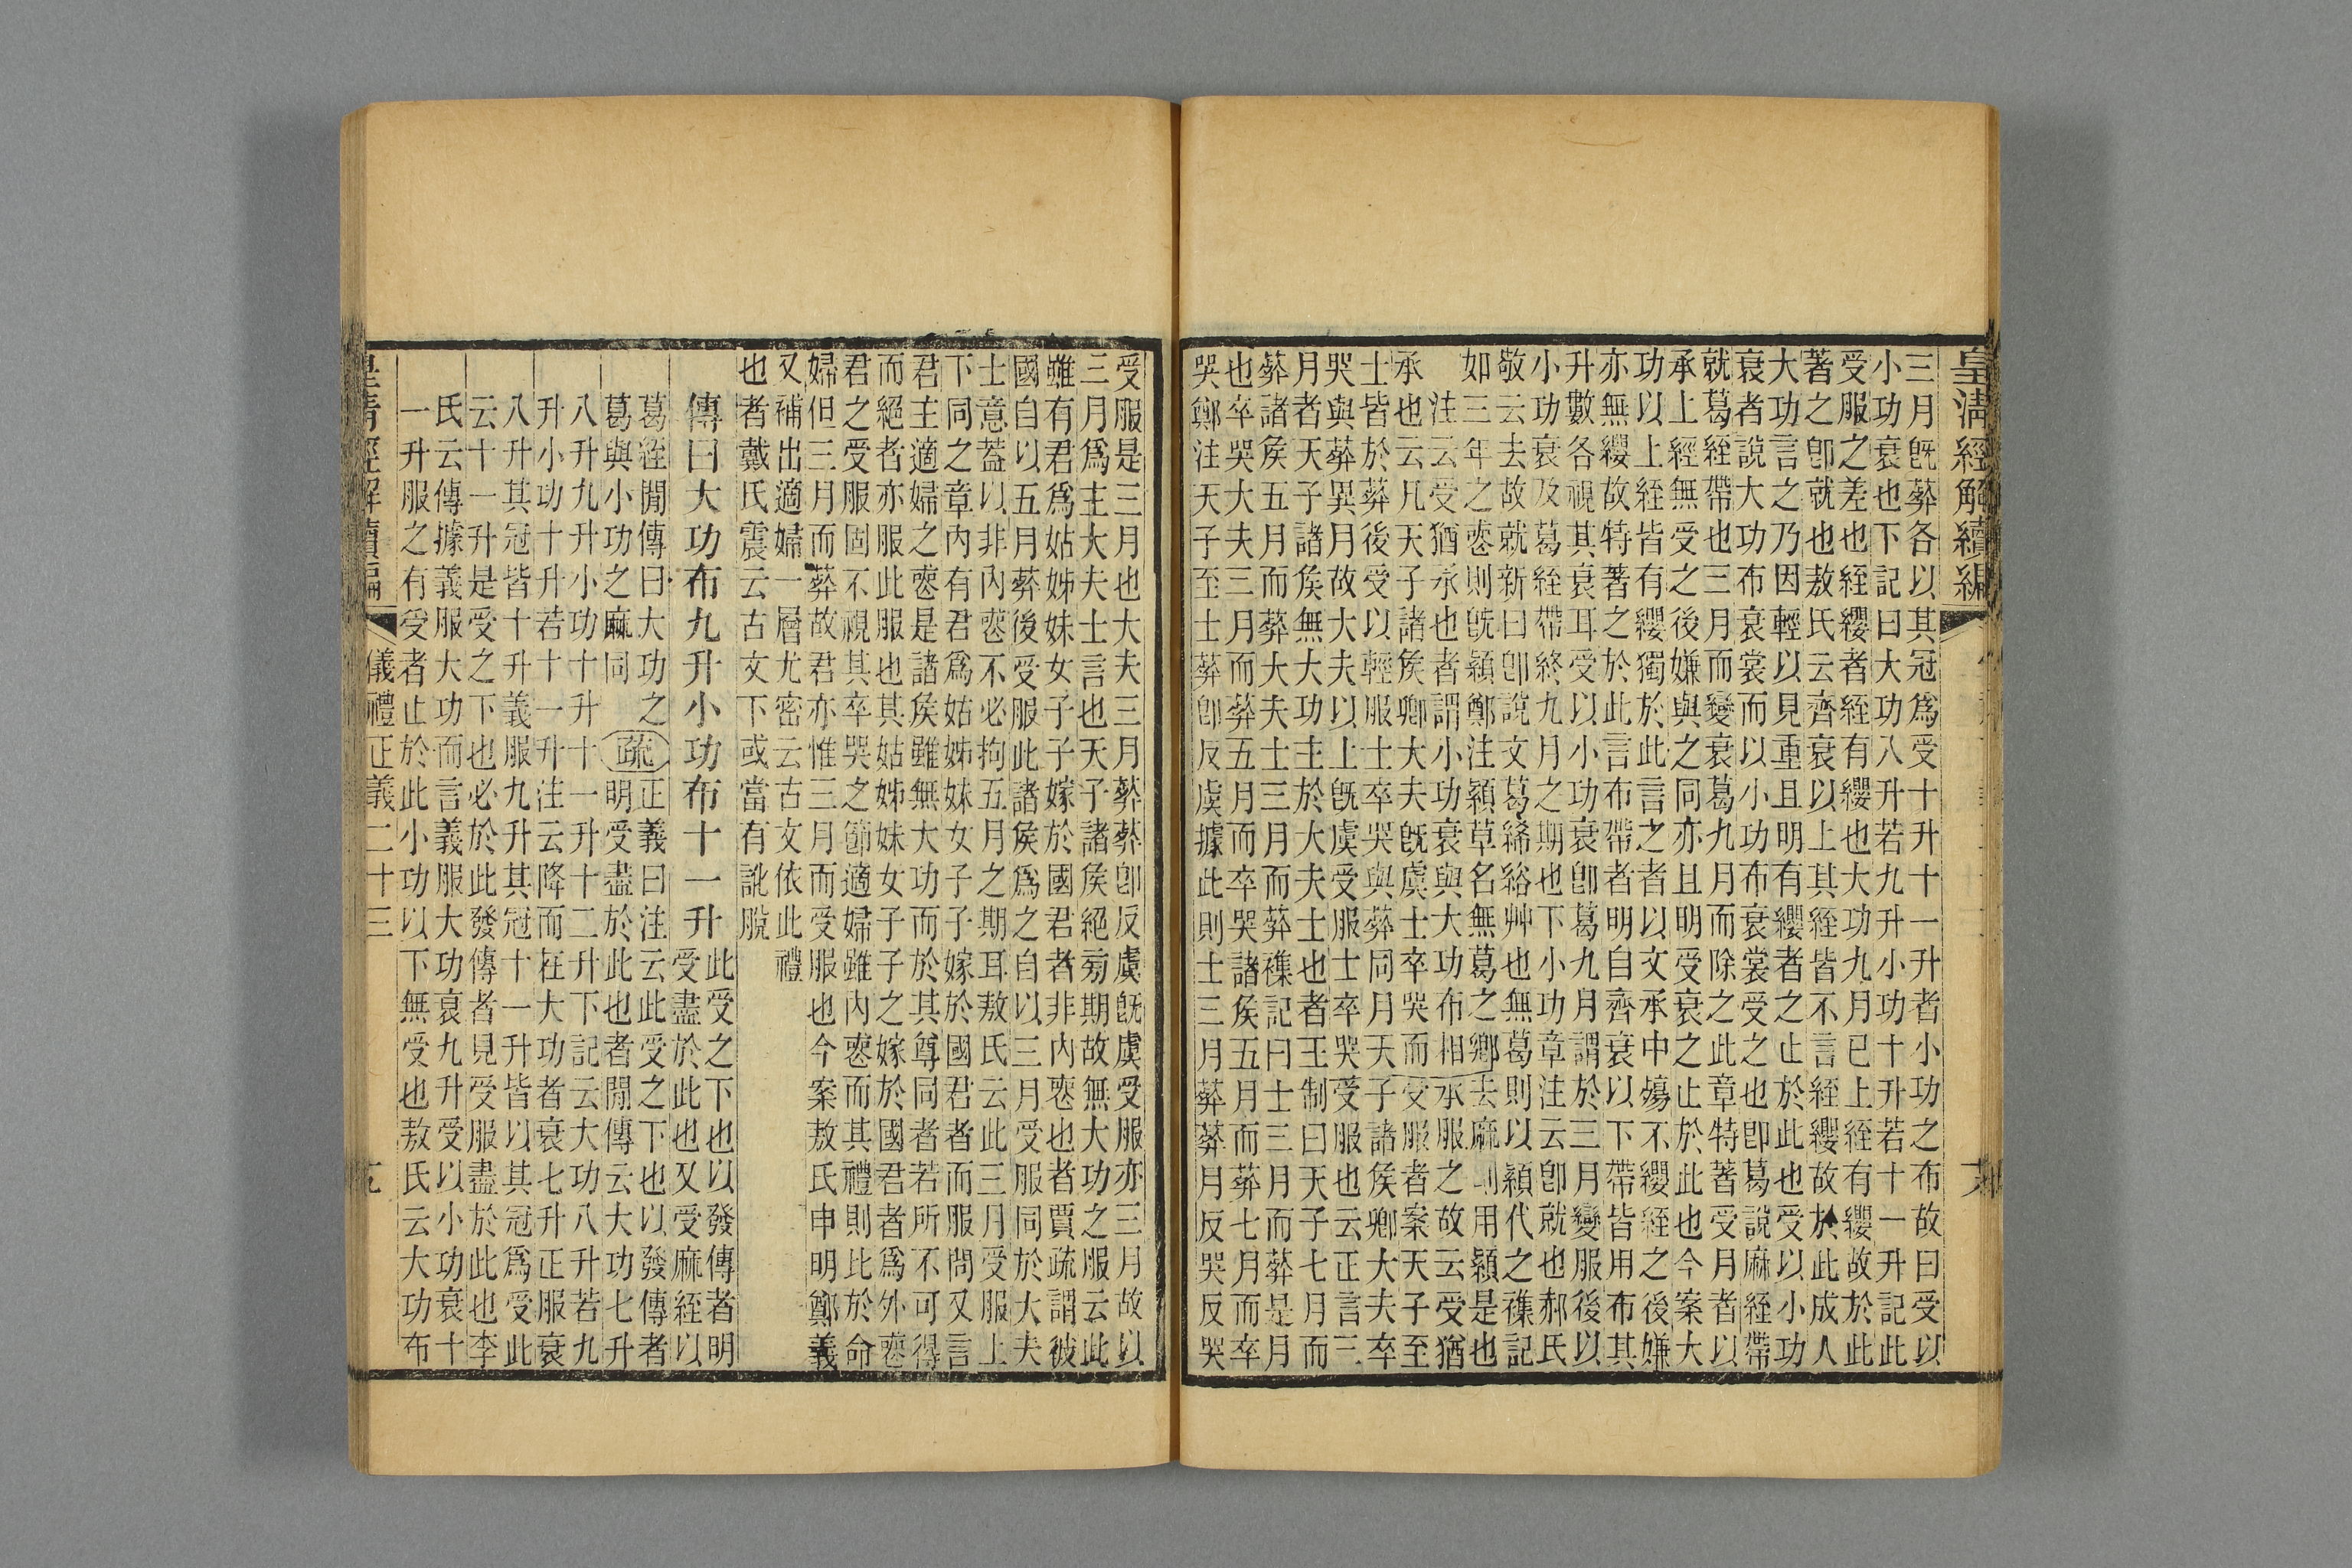 皇清經解續編
三月既葬各以其冠爲受十升十一升者小功之布故曰受以
小功衰也下記曰大功八升若九升小功十升若十一升記此
受服之差也絰纓者絰有纓也大功九月已上絰有纓故於此
著之卽就也敖氏云齊衰以上其絰皆不言絰纓故於此成人
大功言之乃因輕以見重且明有纓者之止於此也受以小功
衰者說大功布衰裳而以小功布衰裳受之也卽葛說麻絰帶
就葛絰帶也三月而變衰葛九月而除之此章特著受月者以
承上經無受之後嫌與之同亦且明受衰之止於此也今案大
功以上絰皆有纓獨於此言之者以文承中殤不纓絰之後嫌
亦無纓故特著之於此言布帶者明自齊衰以下帶皆用布其
升數各視其衰耳受以小功衰卽葛九月謂於三月變服後以
小功衰及葛絰帶終九月之期也下小功章注云卽就也郝氏
敬云去故就新曰卽說文葛絺綌艸也無葛則以顈代之襍記
如三年之喪則既顈鄭注顈草名無葛之鄉去麻則用顈是也
注云受猶承也者謂小功衰與大功布相承服之故云受猶
承也云凡天子諸侯卿大夫既虞士卒哭而受服者案天子至
士皆於葬後受以輕服士卒哭與葬同月天子諸侯卿大夫卒
哭與葬異月故大夫以上既虞受服士卒哭受服也云正言三
月者天子諸侯無大功主於大夫士也者王制曰天子七月而
葬諸侯五月而葬大夫士三月而葬襍記曰士三月而葬是月
也卒哭大夫三月而葬五月而卒哭諸侯五月而葬七月而卒
哭鄭注天子至士葬卽反虞據此則士三月葬葬月反哭反哭
受服是三月也大夫三月葬葬卽反虞既虞受服亦三月故以
三月爲主大夫士言也天子諸侯絕旁期故無大功之服云此
雖有君爲姑姊妹女子子嫁於國君者非內喪也者賈疏謂彼
國自以五月葬後受服此諸侯爲之自以三月受服同於大夫
士意蓋以非內喪不必拘五月之期耳敖氏云此三月受服上
下同之章內有君爲姑姊妹女子子嫁於國君者而服問又言
君主適婦之喪是諸侯雖無大功而於其尊同者若所不可得
而絕者亦服此服也其姑姊妹女子子之嫁於國君者爲外喪
君之受服固不視其卒哭之節適婦雖內喪而其禮則比於命
婦但三月而葬故君亦惟三月而受服也今案敖氏申明鄭義
又補出適婦一層尤密云古文依此禮
也者戴氏震云古文下或當有訛脫
傳曰大功布九升小功布十一升
此受之下也以發傳者明
受盡於此也又受麻絰以
葛絰閒傳曰大功之
葛與小功之麻同
疏
正義曰注云此受之下也以發傳者
明受盡於此也者閒傳云大功七升
八升九升小功十升十一升十二升下記云大功八升若九
升小功十升若十一升注云降而在大功者衰七升正服衰
八升其冠皆十升義服九升其冠十一升皆以其冠爲受此
云十一升是受之下也必於此發傳者見受服盡於此也李
氏云傳據義服大功而言義服大功衰九升受以小功衰十
一升服之有受者止於此小功以下無受也敖氏云大功布
皇清經解續編
儀禮正義二十三